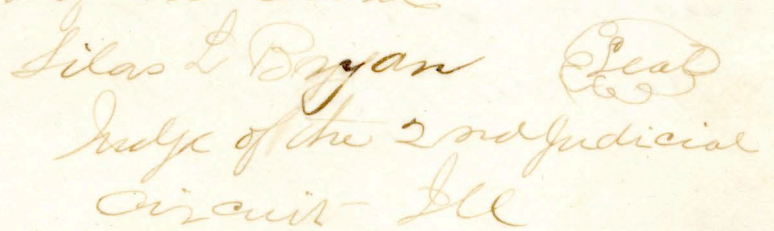 Silas L Bryan Seal
Judge of the 2nd Judicial
Circuit Ill